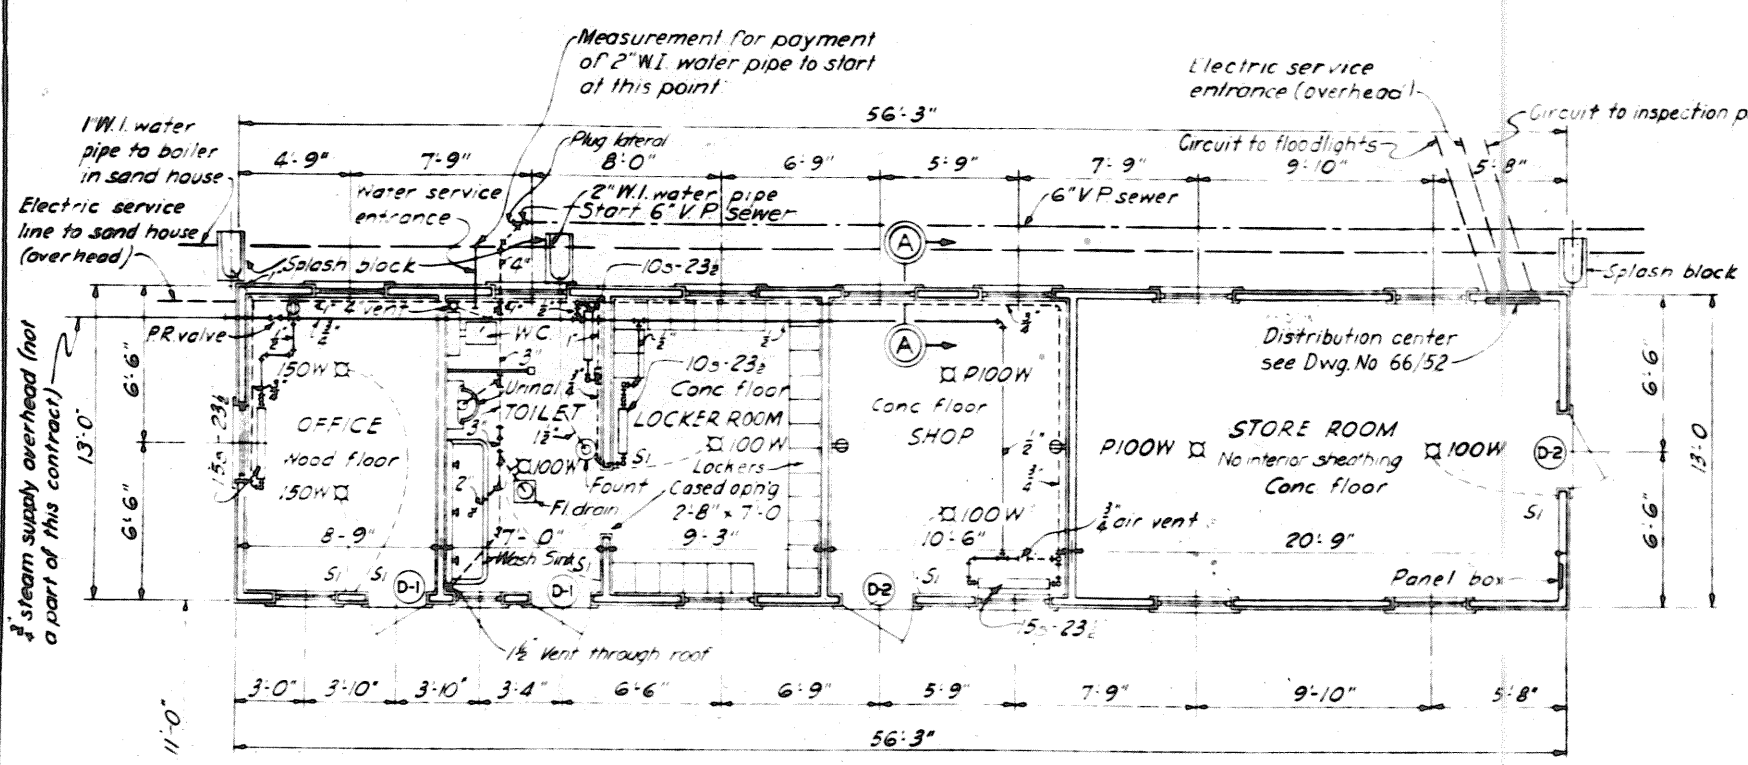 Measurement for payment
of 2" W.I. water pipe to start
at this point
Electric service
entrance (overhead)
Circuit to inspection p
Circuit to floodlights
1" W.I. water
pipe to boiler
in sand house
Electric service
line to sand house
(overhead)
56'-3"
4'-9"
7'-9"
8'-0"
6'-9"
5'-9"
7'-9"
9'-10"
5'-8"
Plug lateral
Water service
entrance
2" W.I. water pipe
Start 6" V.P. sewer
6" V.P. sewer
A
Splash block
4"
10s-23½
Splash block
P.R. valve
4" vent
4"
½"
W.C.
1"
1½"
½"
¾"
A
Distribution center
see Dwg. No 66/52
13'-0"
6'-6"
6'-6"
¾" steam supply overhead (not
a part of this contract)
15s-23½
150W
OFFICE
Wood floor
150W
8'-9"
3"
Urinal
TOILET
1½"
3"
100W
2"
Fount
Fl. drain
7'-0"
Wash Sink
10s-23½
Conc floor
LOCKER ROOM
100W
S1
Lockers
Cased opn'g
2'-8" x 7'-0
9'-3"
P100W
Conc floor
SHOP
½"
¾"
100W
10'-6"
¾" air vent
P100W
STORE ROOM
No interior sheathing
Conc floor
100W
D-2
20'-9"
S1
Panel box
6'-6"
6'-6"
13'-0
S1
S1
D-1
S1
D-1
D-2
S1
15s-23½
1½" Vent through roof
3'-0"
3'-10"
3'-10"
3'-4"
6'-6"
6'-9"
5'-9"
7'-9"
9'-10"
5'-8"
56'-3"
11'-0"